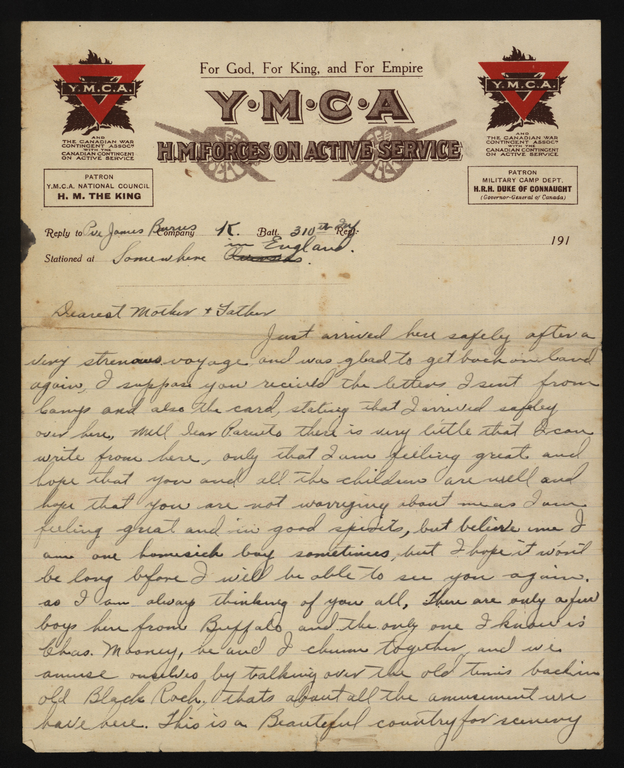 For God, For King, and For Empire
Y·M·C·A
H.M. FORCES ON ACTIVE SERVICE
Y.M.C.A.
AND
THE CANADIAN WAR
CONTINGENT ASSOC'N
WITH THE
CANADIAN CONTINGENT
ON ACTIVE SERVICE
PATRON
Y.M.C.A. NATIONAL COUNCIL
H. M. THE KING
Y.M.C.A.
AND
THE CANADIAN WAR
CONTINGENT ASSOC'N
WITH THE
CANADIAN CONTINGENT
ON ACTIVE SERVICE
PATRON
MILITARY CAMP DEPT.
H.R.H. DUKE OF CONNAUGHT
(Governor-General of Canada)
Reply to Pve James Burns Company K. Batt. 310th Inf Regt. 191
Stationed at Somewhere in England.
Dearest Mother & Father
Just arrived here safely after a
very strenous voyage and was glad to get back on land
again, I suppose you received the letters I sent from
Camp and also the card, stating that I arrived safely
over here, Well Dear Parents there is very little that I can
write from here, only that I am feeling great and
hope that you and all the children are well and
hope that you are not worrying about me as I am
feeling great and in good spirits, but believe me I
am one homesick boy sometimes, but I hope it won't
be long before I will be able to see you again.
as I am always thinking of you all, There are only a few
boys here from Buffalo and the only one I know is
Chas. Mooney, he and I chum together and we
amuse ourselves by talking over the old times back in
old Black Rock, thats about all the amusement we
have here. This is a Beautiful country for scenery